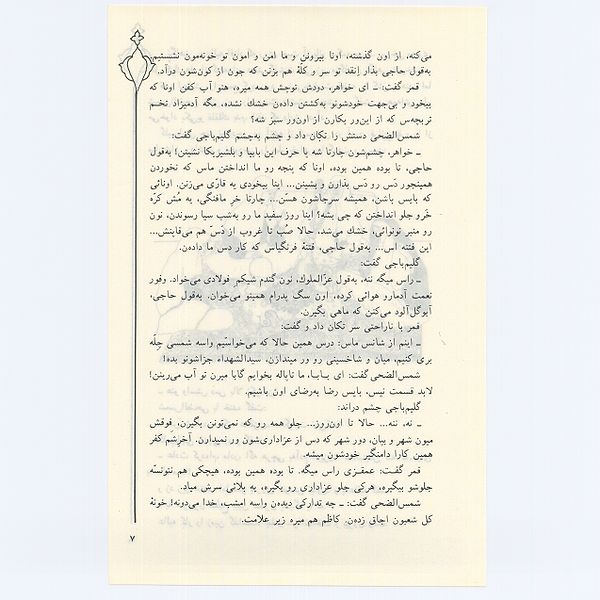 می‌کنه، از اون گذشته، اونا بیرونن و ما امن و امون تو خونه‌مون نشستیم.
به‌قول حاجی بذار اِنقد تو سر و کلّهٔ هم بزنن که جون از کون‌شون درآد.
قمر گفت: ـ ای خواهر، دودش توچش همه میره، هنو آب کفن اونا که
بیخود و بی‌جهت خودشونو به‌کشتن دادن خشك نشده، مگه آدمیزاد تخم
تربچه‌س که از این‌ور بکارن از اون‌ور سبز شه؟
شمس‌الضحی دستش را تکان داد و چشم به‌چشم گلیم‌باجی گفت:
ـ خواهر، چشم‌شون چارتا شه با حرف این بابیا و بلشیریکا نشینن! به‌قول
حاجی، تا بوده همین بوده، اونا که پنجه رو ما انداختن ماس که نخوردن
همینجور دَس رو دَس بذارن و بشینن... اینا بیخودی یه قازّی می‌زنن. اونائی
که بایس باشن، همیشه سرجاشون هسّن... چارتا خر مافنگی، یه مُش کرّه
خَرو جلو انداختن که چی بشه؟ اینا روز سفید ما رو به‌شب سیا رسوندن، نون
رو منبر تونوائی، خشك می‌شد، حالا صُب تا غروب از دَسّ هم می‌قاپنش...
این فتنه اس... به‌قول حاجی، فتنهٔ فرنگیاس که کار دس ما داده‌ن.
گلیم‌باجی گفت:
ـ راس میگه ننه، به‌قول عزّالملوك، نون گندم شیکم فولادی می‌خواد. وفور
نعمت آدمارو هوائی کرده، اون سگ پدرام همینو می‌خوان. به‌قول حاجی،
آبوگل‌آلود می‌کنن که ماهی بگیرن.
قمر با ناراحتی سر تکان داد و گفت:
ـ اینم از شانس ماس: درس همین حالا که می‌خواسّیم واسه شمسی چلّه
بری کنیم، میان و شاخسینی رو ور میندازن، سیدالشهداء جزاشونو بده!
شمس‌الضحی گفت: ای بـابـا، ما تاباله بخوایم گابا میرن تو آب می‌رینن!
لابد قسمت نیس. بایس رضا به‌رضای اون باشیم.
گلیم‌باجی چشم دراند:
ـ نه، ننه... حالا تا اون‌روز... جلو همه رو که نمی‌تونن بگیرن، فوقش
میون شهر و بیان، دور شهر که دس از عزاداری‌شون ور نمیدارن. آخرشم کفر
همین کارا دامنگیر خودشون میشه.
قمر گفـت: عمقـزی راس میگه. تا بوده همین بوده، هیچکی هم نتونسّه
جلوشو بیگیره، هرکی جلو عزاداری رو بگیره، یه بلائی سرش میاد.
شمس‌الضحی گفت: ـ چه تدارکی دیده‌ن واسه امشب، خدا می‌دونه! خونهٔ
کل شعبون اجاق زده‌ن. کاظم هم میره زیر علامت.
۷